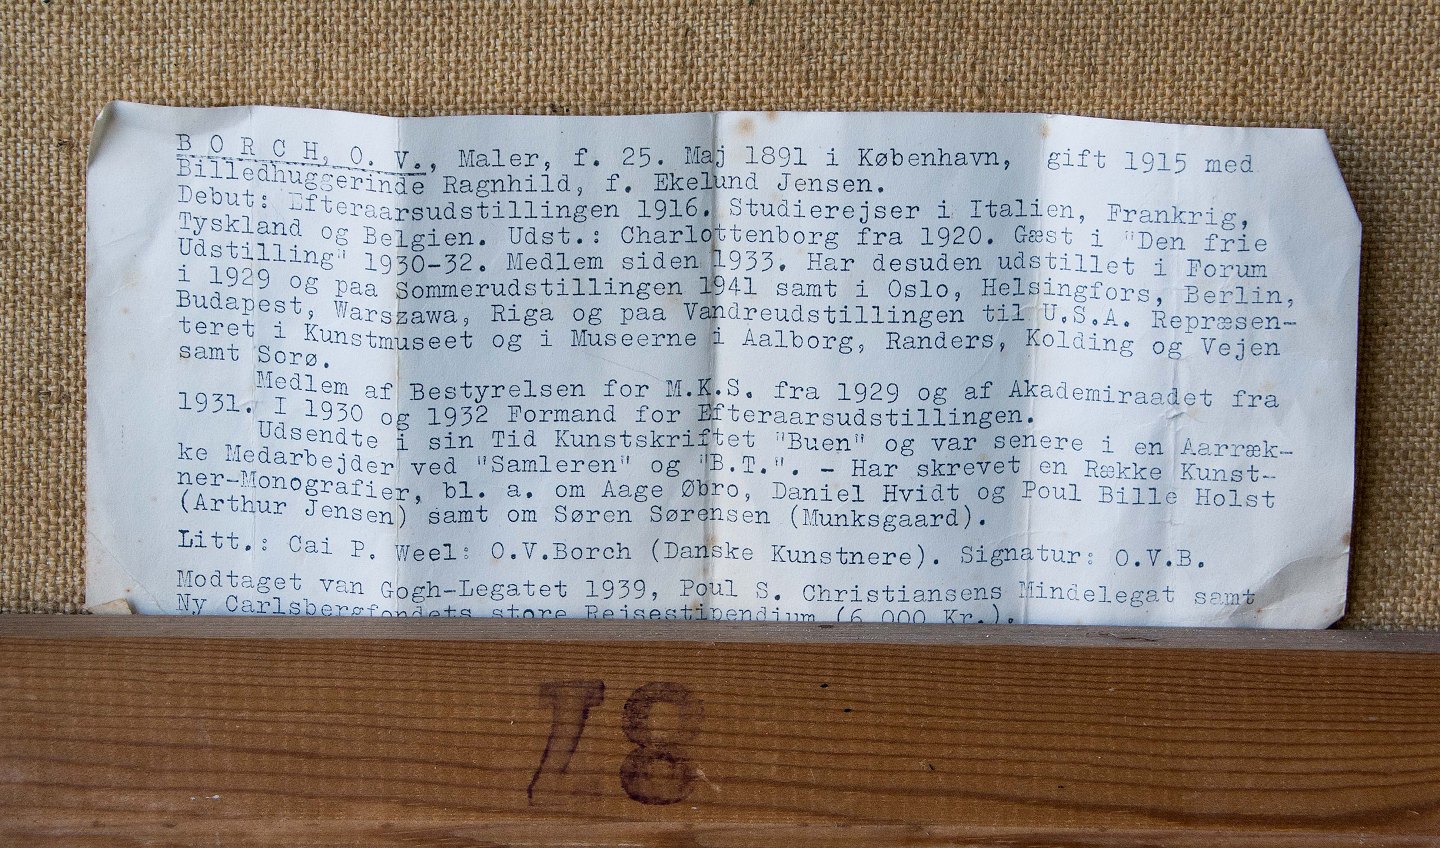 B O R C H, O. V., Maler, f. 25. Maj 1891 i København, gift 1915 med
Billedhuggerinde Ragnhild, f. Ekelund Jensen.
Debut: Efteraarsudstillingen 1916. Studierejser i Italien, Frankrig,
Tyskland og Belgien. Udst.: Charlottenborg fra 1920. Gæst i "Den frie
Udstilling" 1930-32. Medlem siden 1933. Har desuden udstillet i Forum
i 1929 og paa Sommerudstillingen 1941 samt i Oslo, Helsingfors, Berlin,
Budapest, Warszawa, Riga og paa Vandreudstillingen til U.S.A. Repræsen-
teret i Kunstmuseet og i Museerne i Aalborg, Randers, Kolding og Vejen
samt Sorø.
Medlem af Bestyrelsen for M.K.S. fra 1929 og af Akademiraadet fra
1931. I 1930 og 1932 Formand for Efteraarsudstillingen.
Udsendte i sin Tid Kunstskriftet "Buen" og var senere i en Aarræk-
ke Medarbejder ved "Samleren" og "B.T.". - Har skrevet en Række Kunst-
ner-Monografier, bl. a. om Aage Øbro, Daniel Hvidt og Poul Bille Holst
(Arthur Jensen) samt om Søren Sørensen (Munksgaard).
Litt.: Cai P. Weel: O.V.Borch (Danske Kunstnere). Signatur: O.V.B.
Modtaget van Gogh-Legatet 1939, Poul S. Christiansens Mindelegat samt
Ny Carlsbergfondets store Rejsestipendium (6.000 Kr.).